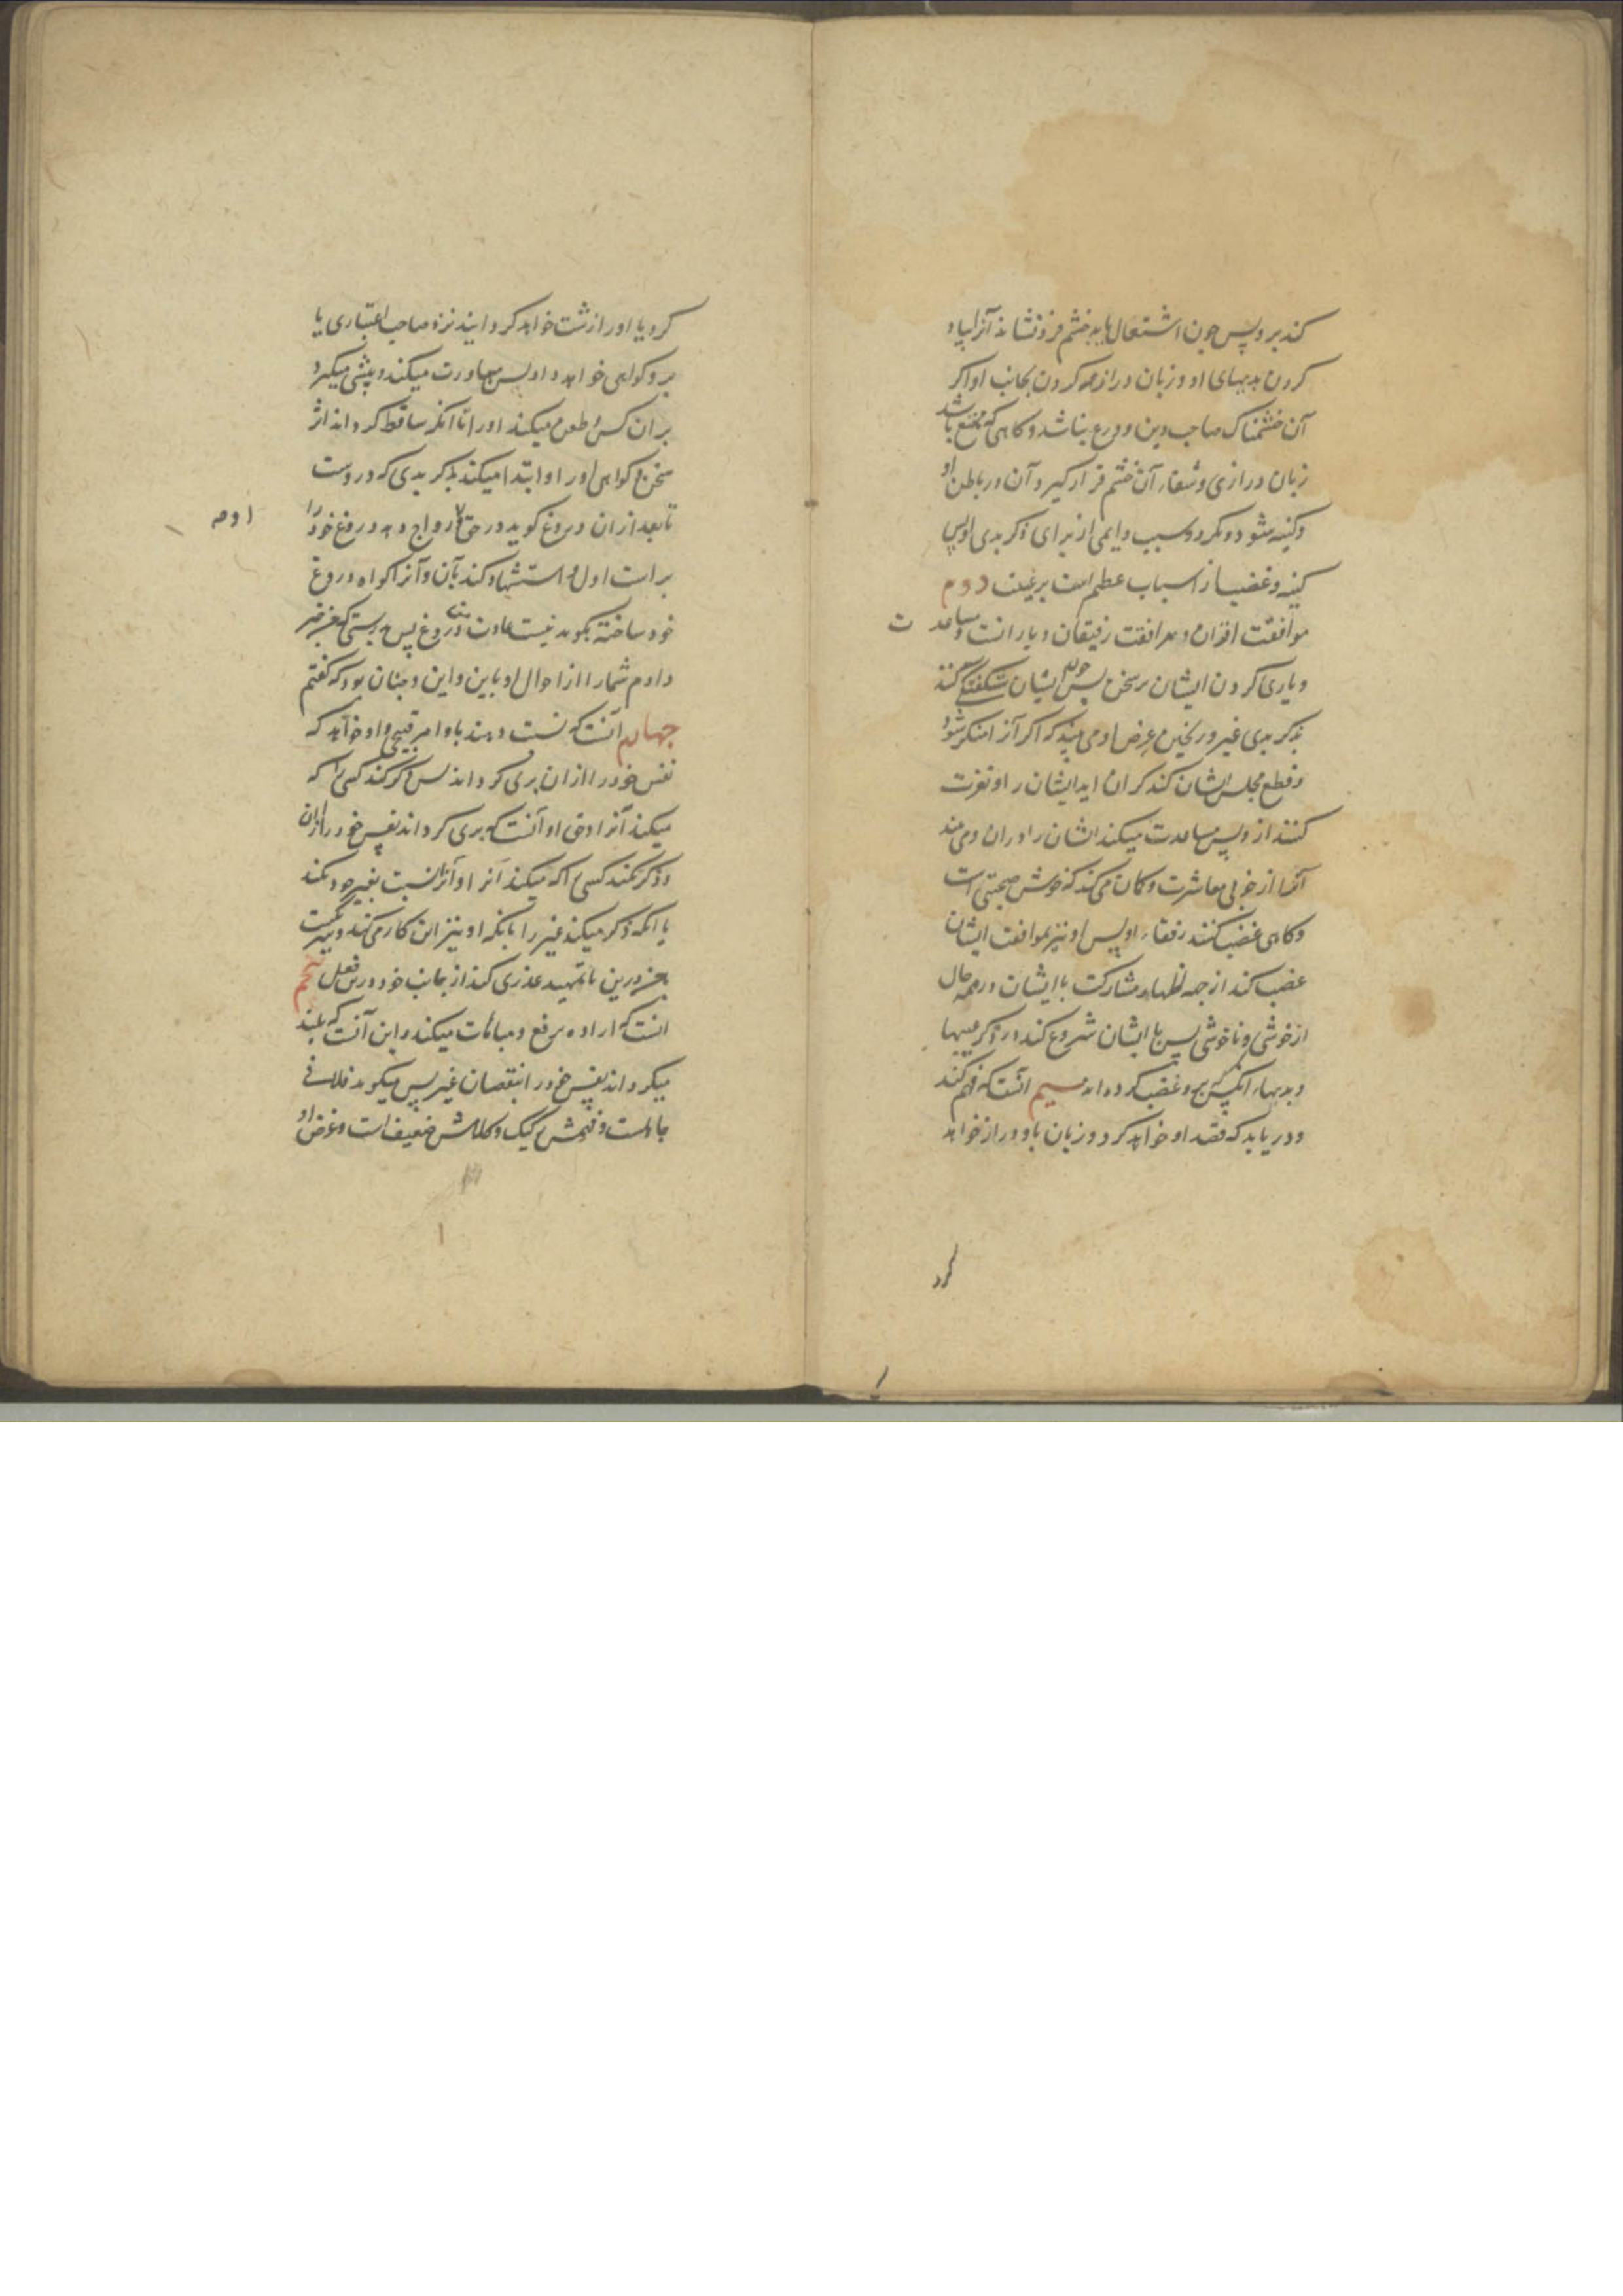 کند برو پس چون اشتعال یابد خشم فرو نشاند آنرا بیاد
کردن بدیهای او و زبان دراز کردن بجانب او اگر
آن خشمناک صاحب دین و ورع نباشد و کاهی که ممتنع باشد
زبان درازی و شفاء آن خشم قرار کیرد آن در باطن او
و کینه شود و مکرد و سبب دایمی از برای ذکر بدی او پس
کینه و غضب از اسباب عظیم است بر غیبت دوم
موافقت اقران و مرافقت رفیقان و یارانست و مساعدت
و یاری کردن ایشان بر سخن پس چون ایشان شکفتگی کنند
بذکر بدی غیر و ریختن عرض او می بیند که اگر آنرا منکر شود
و قطع مجلس ایشان کند کران اید ایشان را و نفرت
کنند ازو پس مساعدت میکند ایشان را در ان و می بیند
آنرا از خوبی معاشرت و کمان می کند که خوش صحبتی است
و کاهی غضب کنند رفقاء او پس او نیز بموافقت ایشان
غضب کند از جهه اظهار مشارکت با ایشان در همه حال
از خوشی و ناخوشی پس با ایشان شروع کند در ذکر عیبها
و بدیهاء آنکس که برو غضب کرده اند سیم آنست که فهم کند
و دریابد که قصد او خواهد کرد و زبان باو دراز خواهد
کرد
کرد یا او را زشت خواهد کردانید نزد صاحب اعتباری یا
برو کواهی خواهد داد پس مبادرت میکند و پیشی میکیرد
بر ان کس و طعن میکند او را تا آنکه ساقط کرداند اثر
سخن و کواهی او را و ابتدا میکند بذکر بدی که دروست
تا بعد از ان دروغ کوید در حق او و رواج دهد دروغ خود را
براست اول و استشهاد کند بآن و آنرا کواه دروغ
خود ساخته بکوید نیست عادت من دروغ پس بدرستی که من خبر
دادم شما را از احوال او باین و این و چنان بود که کفتم
چهارم آنست که نسبت دهند باو امر قبیحی و او خواهد که
نفس خود را از ان بری کرداند پس ذکر کند کسی را که
میکند آنرا و حق او آنست که بری کرداند نفس خود را از ان
و ذکر نکند کسی را که میکند آنرا و آنرا نسبت بغیر خود نکند
یا آنکه ذکر میکند غیر را بآنکه او نیز این کار می کند و نیست
عذر درین تا تمهید عذری کند از جانب خود درین فعل پنجم
آنست که اراده رفع و مباهات میکند و این آنست که بلند
میکرداند نفس خود را بنقصان غیر پس میکوید فلانی
جاهلست و فهمش رکیک و کلامش ضعیف است و غرض او